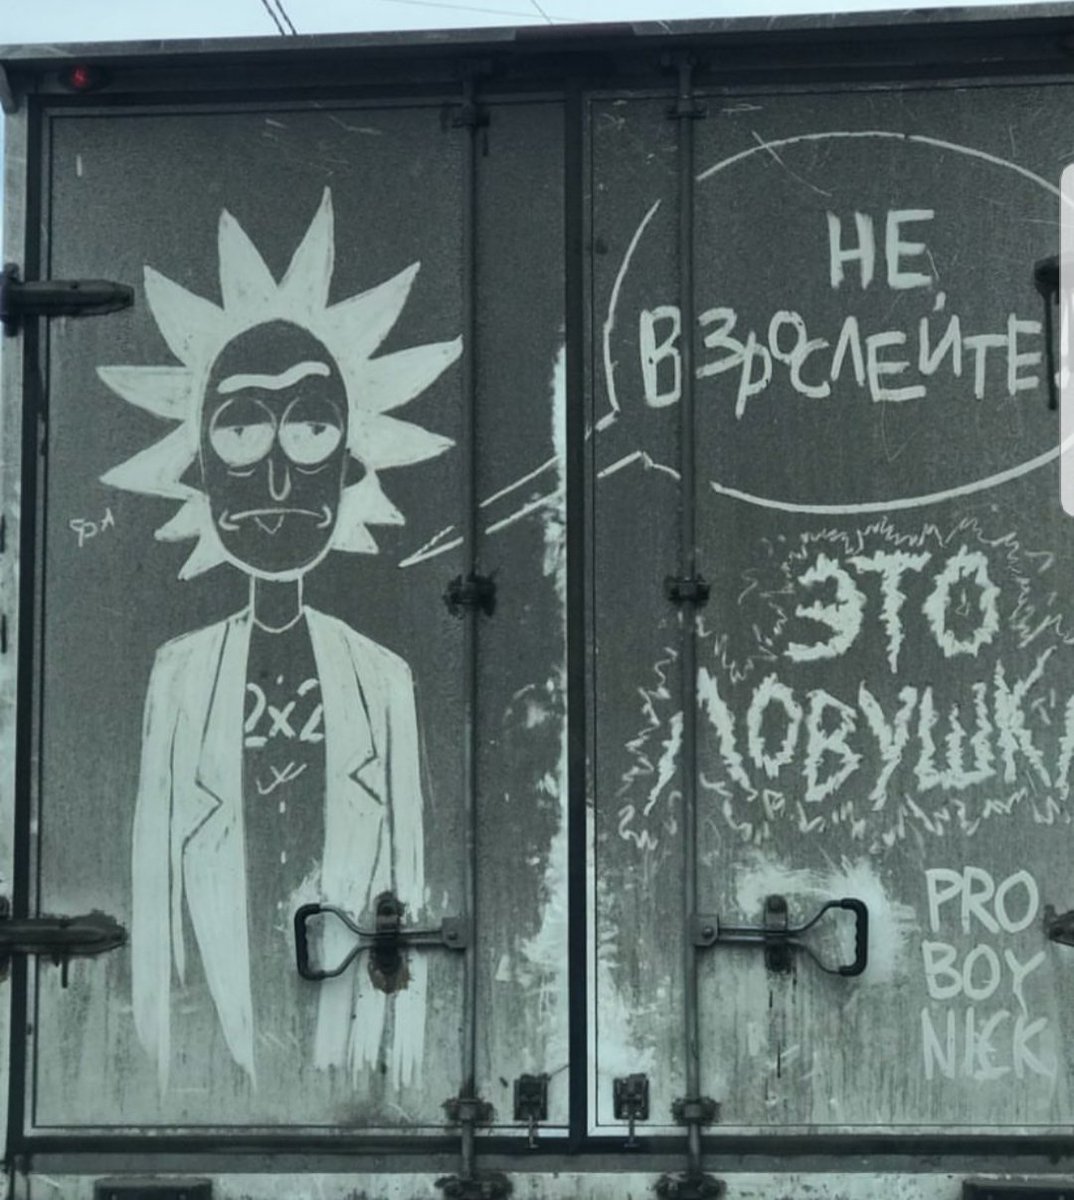 НЕ
ВЗРОСЛЕЙТЕ
ЭТО
ЛОВУШКА
2x2
PRO
BOY
NICK